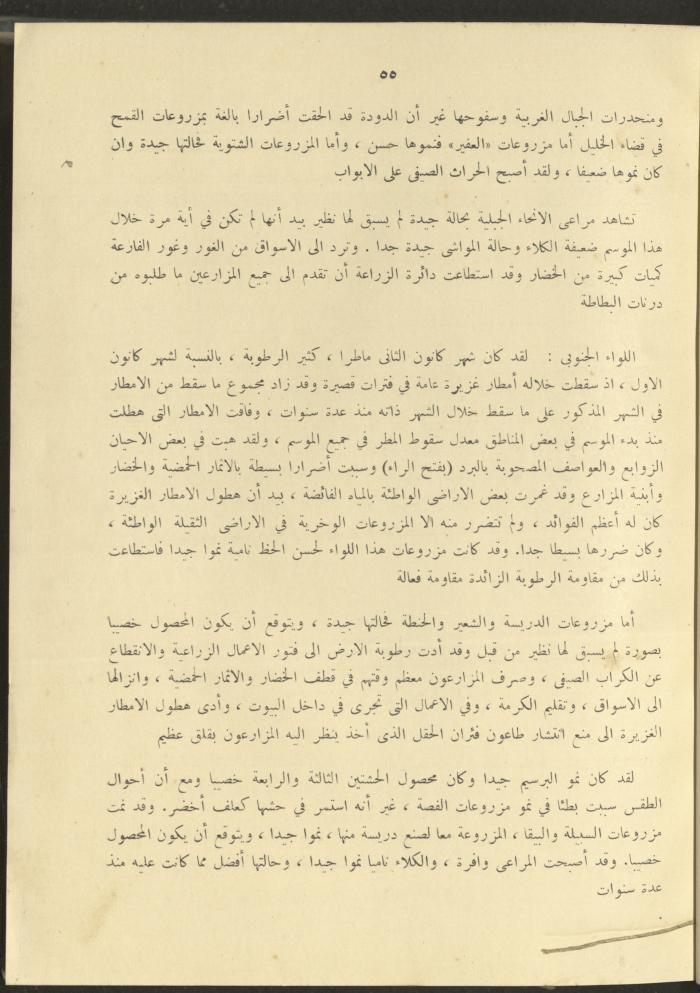 ٥٥
ومنحدرات الجبال الغربية وسفوحها غير أن الدودة قد الحقت أضرارا بالغة بمزروعات القمح
في قضاء الخليل أما مزروعات «العفير» فنموها حسن ، وأما المزروعات الشتوية فحالتها جيدة وان
كان نموها ضعيفا ، ولقد أصبح الحراث الصيفى على الابواب
تشاهد مراعى الانحاء الجبلية بحالة جيدة لم يسبق لها نظير بيد أنها لم تكن في أية مرة خلال
هذا الموسم ضعيفة الكلاء وحالة المواشى جيدة جدا . وترد الى الاسواق من الغور وغور الفارعة
كميات كبيرة من الخضار وقد استطاعت دائرة الزراعة أن تقدم الى جميع المزارعين ما طلبوه من
درنات البطاطة
اللواء الجنوبى : لقد كان شهر كانون الثانى ماطرا ، كثير الرطوبة ، بالنسبة لشهر كانون
الاول ، اذ سقطت خلاله أمطار غزيرة عامة في فترات قصيرة وقد زاد مجموع ما سقط من الامطار
في الشهر المذكور على ما سقط خلال الشهر ذاته منذ عدة سنوات ، وفاقت الامطار التى هطلت
منذ بدء الموسم في بعض المناطق معدل سقوط المطر في جميع الموسم ، ولقد هبت في بعض الاحيان
الزوابع والعواصف المصحوبة بالبرد (بفتح الراء) وسببت أضرارا بسيطة بالاثمار الحمضية والخضار
وأبنية المزارع وقد غمرت بعض الاراضى الواطئة بالمياه الفائضة ، بيد أن هطول الامطار الغزيرة
كان له أعظم الفوائد ، ولم تتضرر منه الا المزروعات الوخرية في الاراضى الثقيلة الواطئة ،
وكان ضررها بسيطا جدا. وقد كانت مزروعات هذا اللواء لحسن الحظ نامية نموا جيدا فاستطاعت
بذلك من مقاومة الرطوبة الزائدة مقاومة فعالة
أما مزروعات الدريسة والشعير والحنطة فحالتها جيدة ، ويتوقع أن يكون المحصول خصيبا
بصورة لم يسبق لها نظير من قبل وقد أدت رطوبة الارض الى فتور الاعمال الزراعية والانقطاع
عن الكراب الصيفى ، وصرف المزارعون معظم وقتهم في قطف الخضار والاثمار الحمضية ، وانزالها
الى الاسواق ، وتقليم الكرمة ، وفي الاعمال التى تجرى في داخل البيوت ، وأدى هطول الامطار
الغزيرة الى منع انتشار طاعون فئران الحقل الذى أخذ ينظر اليه المزارعون بقلق عظيم
لقد كان نمو البرسيم جيدا وكان محصول الحشتين الثالثة والرابعة خصيبا ومع أن أحوال
الطقس سببت بطئا في نمو مزروعات الفصة ، غير أنه استمر في حشها كعلف أخضر. وقد نمت
مزروعات السبيلة والبيقا ، المزروعة معا لصنع دريسة منها ، نموا جيدا ، ويتوقع أن يكون المحصول
خصيبا. وقد أصبحت المراعى وافرة ، والكلاء ناميا نموا جيدا ، وحالتها أفضل مما كانت عليه منذ
عدة سنوات